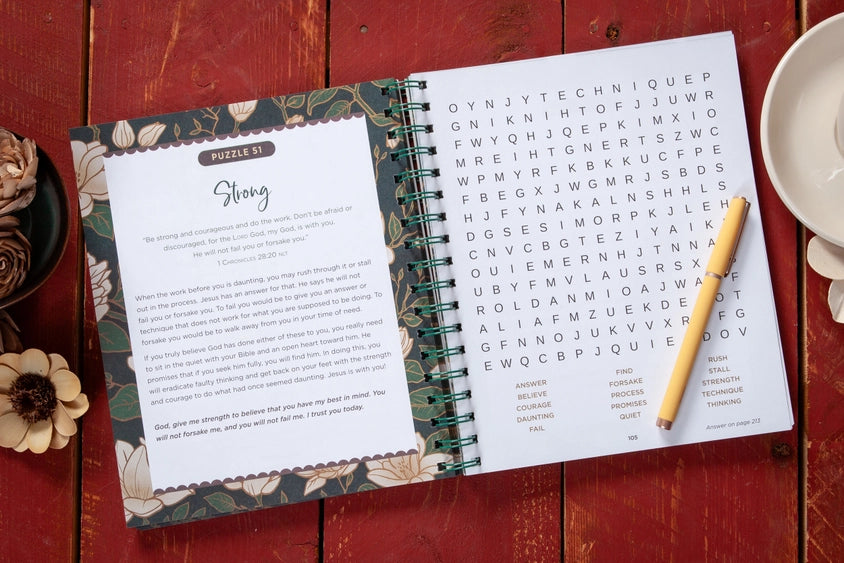 PUZZLE 51
Strong
"Be strong and courageous and do the work. Don't be afraid or
discouraged, for the LORD God, my God, is with you.
He will not fail you or forsake you."
1 CHRONICLES 28:20 NLT
When the work before you is daunting, you may rush through it or stall
out in the process. Jesus has an answer for that. He says he will not
fail you or forsake you. To fail you would be to give you an answer or
technique that does not work for what you are supposed to be doing. To
forsake you would be to walk away from you in your time of need.
If you truly believe God has done either of these to you, you really need
to sit in the quiet with your Bible and an open heart toward him. He
promises that if you seek him fully, you will find him. In doing this, you
will eradicate faulty thinking and get back on your feet with the strength
and courage to do what had once seemed daunting. Jesus is with you!
God, give me strength to believe that you have my best in mind. You
will not forsake me, and you will not fail me. I trust you today.
O Y N J Y T E C H N I Q U E P
G N I K N I H T O F J J U W R
F W Y Q H J Q E P K I M X I O
M R E I H T G N E R T S Z W C
W P M Y R F K B K K U C F P E
F B E G X J W G M R J S B D S
H J F Y N A K A L N S H H L S
D G S E S I M O R P K J L E H
C N V C B G T E Z I Y A I K
O U I E M E R N H J T N N A
U B Y F M V L A U S R S X
R O L D A N M I O A J W A F
A L I A F M Z U E K D E O T
G F N N O J U K V V X R F G
E W Q C B P J Q U I E D O V
ANSWER
BELIEVE
COURAGE
DAUNTING
FAIL
FIND
FORSAKE
PROCESS
PROMISES
QUIET
RUSH
STALL
STRENGTH
TECHNIQUE
THINKING
105
Answer on page 213